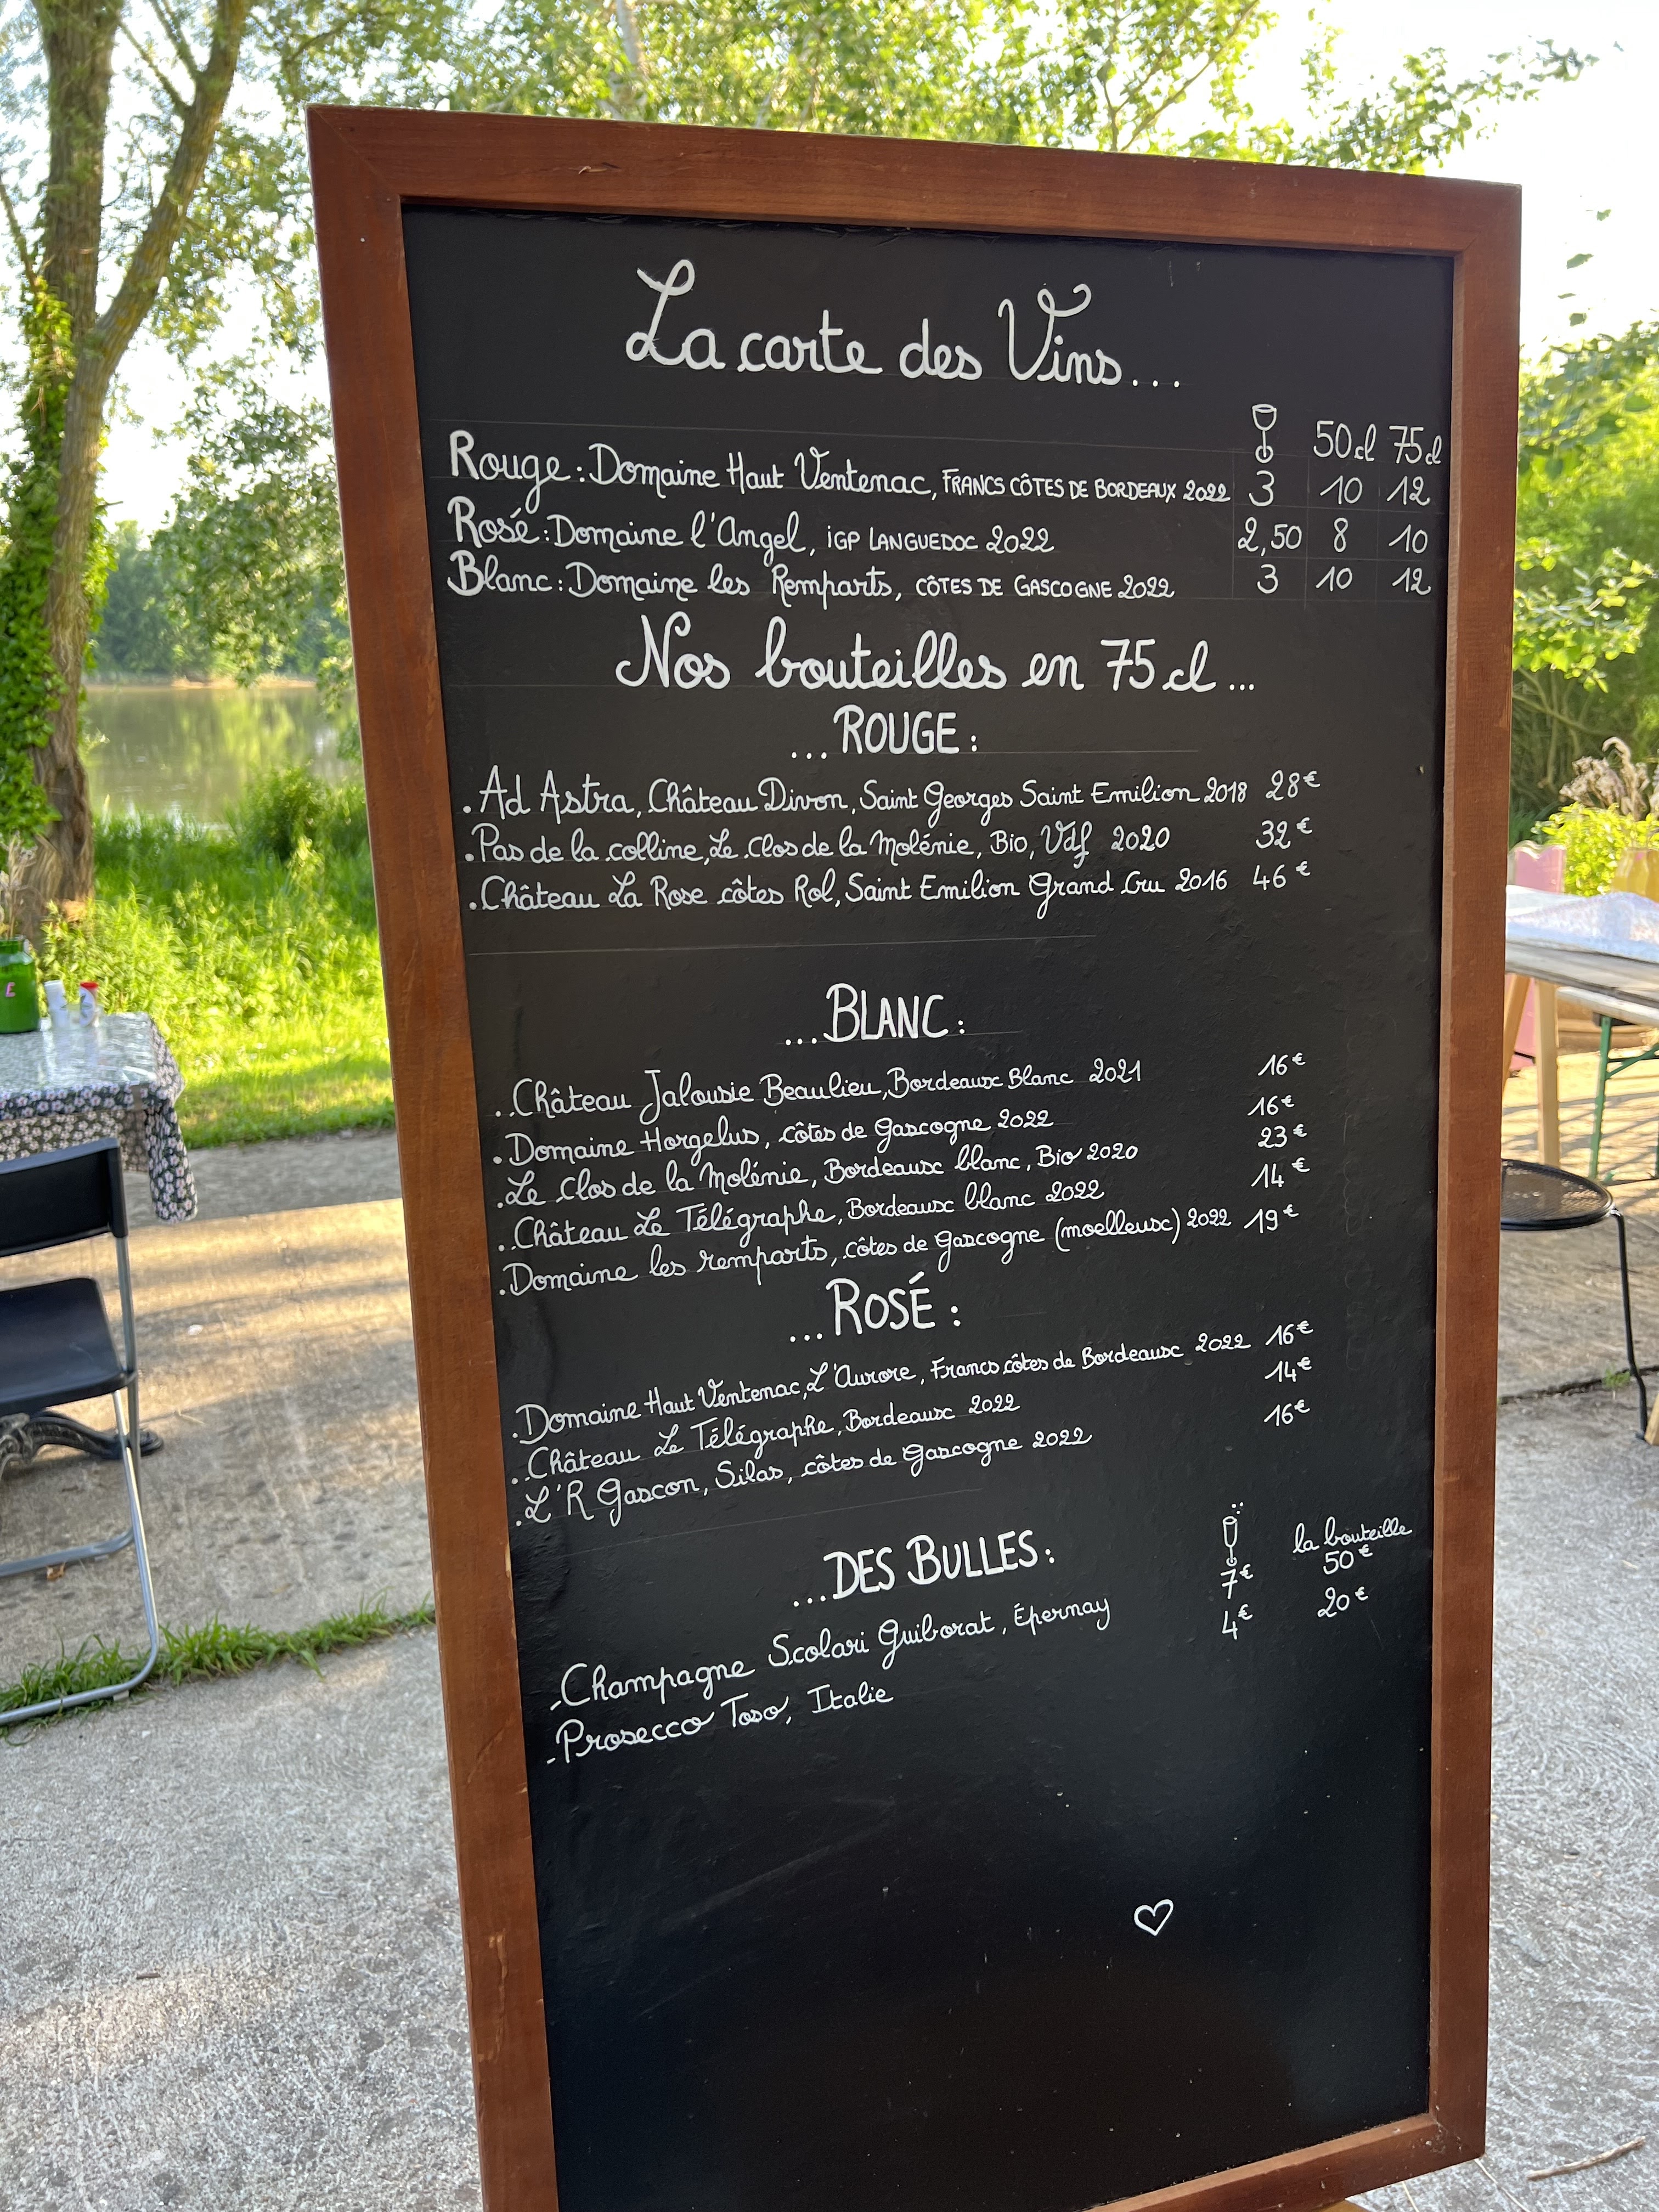 La carte des Vins...
50cl 75cl
Rouge: Domaine Haut Ventenac, FRANCS CÔTES DE BORDEAUX 2022 3 10 12
Rosé: Domaine l'Angel, iGP LANGUEDOC 2022 2,50 8 10
Blanc: Domaine les Remparts, CÔTES DE GASCOGNE 2022 3 10 12
Nos bouteilles en 75cl...
...ROUGE:
. Ad Astra, Château Divon, Saint Georges Saint Emilion 2018 28€
. Pas de la colline, Le Clos de la Molénie, Bio, Vdf 2020 32€
. Château La Rose côtes Rol, Saint Emilion Grand Cru 2016 46€
...BLANC:
. Château Jalousie Beaulieu, Bordeaux Blanc 2021 16€
. Domaine Horgelus, côtes de Gascogne 2022 16€
. Le Clos de la Molénie, Bordeaux blanc, Bio 2020 23€
. Château Le Télégraphe, Bordeaux blanc 2022 14€
. Domaine les remparts, côtes de Gascogne (moelleux) 2022 19€
...ROSÉ:
. Domaine Haut Ventenac, L'Aurore, Francs côtes de Bordeaux 2022 16€
. Château Le Télégraphe, Bordeaux 2022 14€
. L'R Gascon, Silas, côtes de Gascogne 2022 16€
...DES BULLES: la bouteille
- Champagne Scolari Guiborat, Épernay 7€ 50€
- Prosecco Toso, Italie 4€ 20€
E